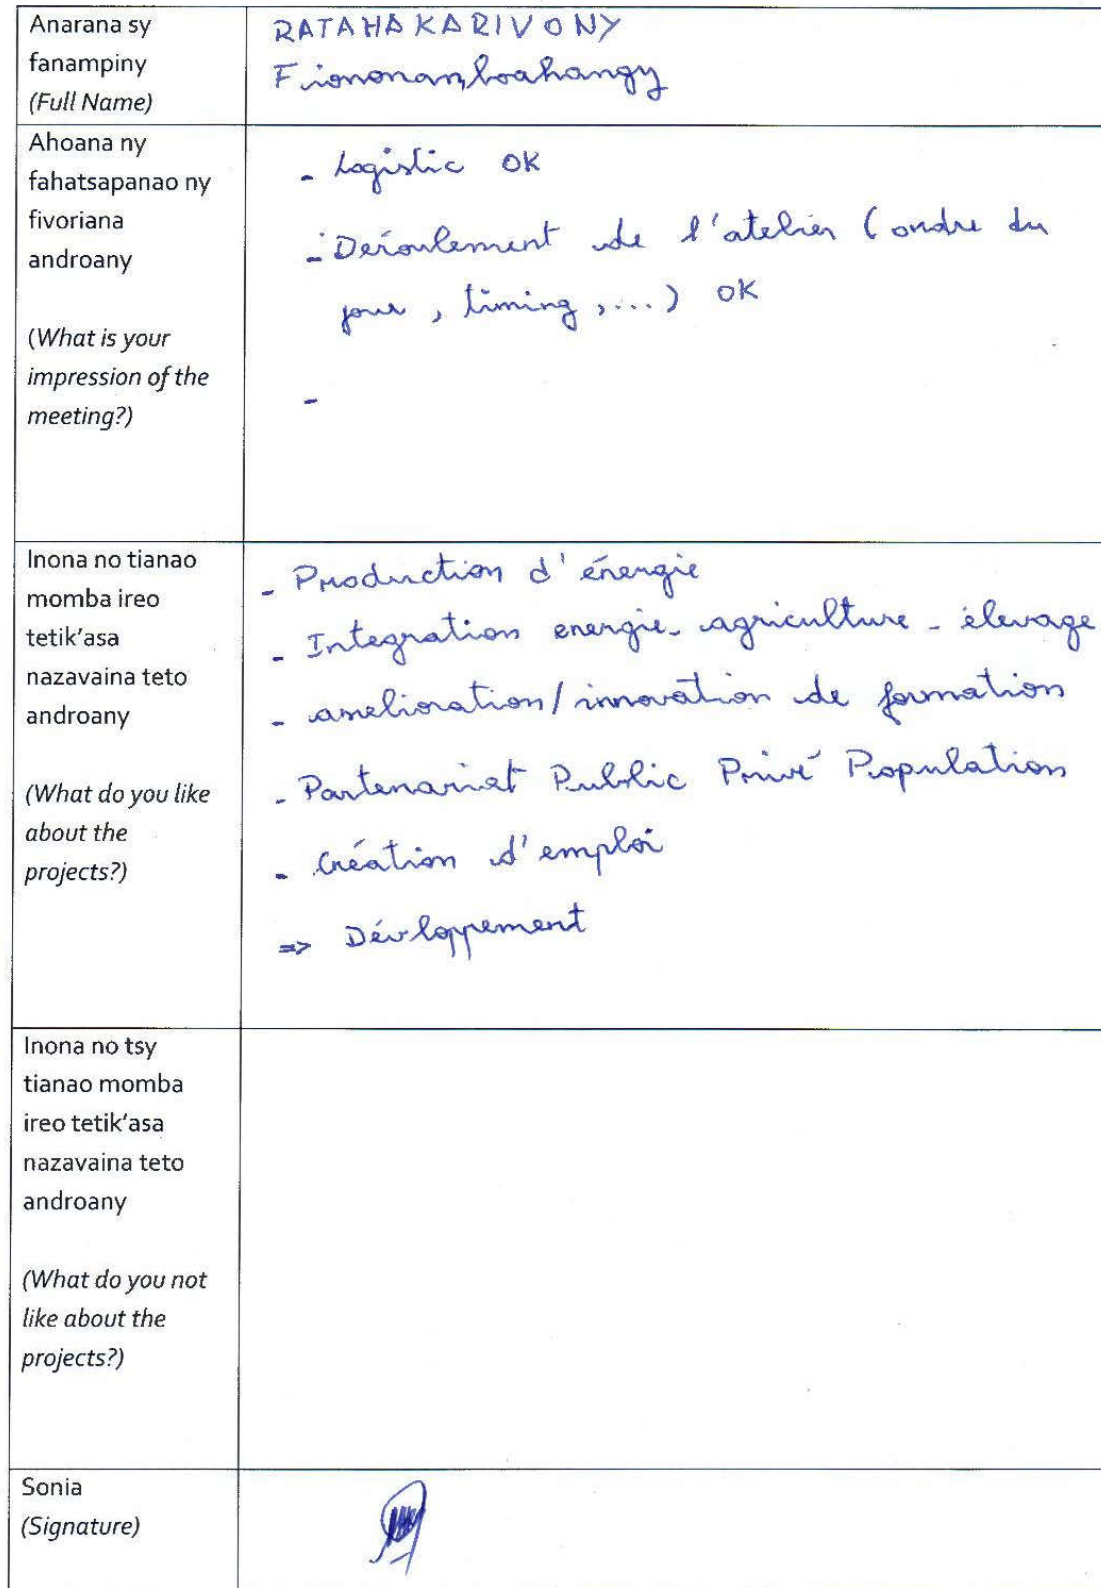 Anarana sy
fanampiny
(Full Name)
RATAHAKARIVONY
Fiononantsoahangy
Ahoana ny
fahatsapanao ny
fivoriana
androany
(What is your
impression of the
meeting?)
- Logistic OK
- Déroulement de l'atelier (ordre du
jour, timing, ...) OK
-
Inona no tianao
momba ireo
tetik'asa
nazavaina teto
androany
(What do you like
about the
projects?)
- Production d'énergie
- Integration energie - agriculture - élevage
- amelioration/innovation de formation
- Partenariat Public Privé Population
- Création d'emploi
=> Dévloppement
Inona no tsy
tianao momba
ireo tetik'asa
nazavaina teto
androany
(What do you not
like about the
projects?)
Sonia
(Signature)